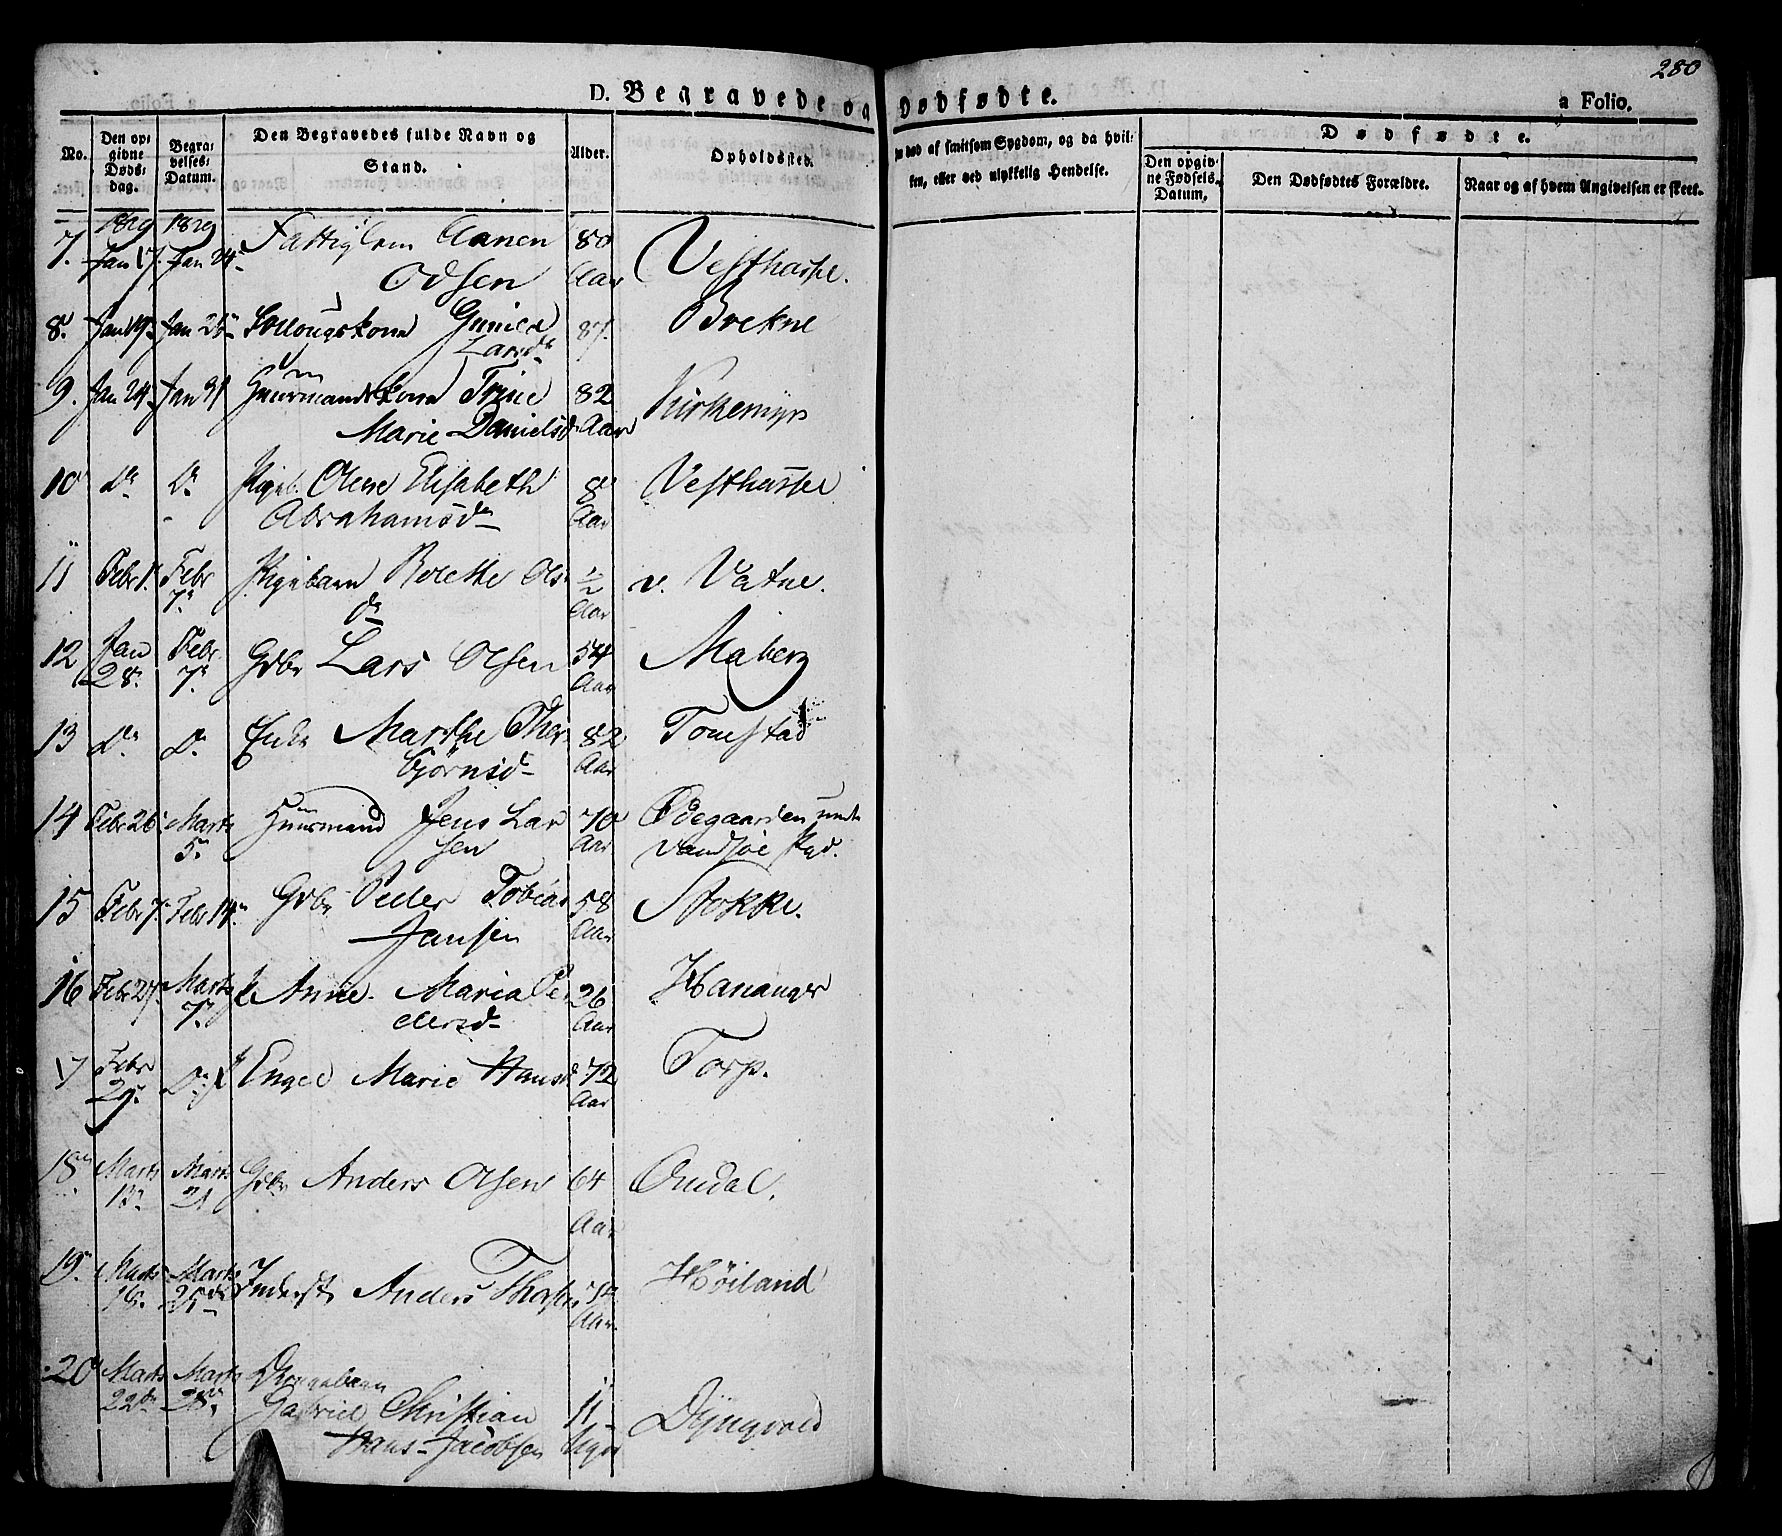 280
D. Begravede og Dødfødte.
a Folio.
No.
Den op-
givne
Døds-
dag.
Begra-
velses-
Datum.
Den Begravedes fulde Navn og
Stand.
Alder.
Opholdssted.
død af smitsom Sygdom, og da hvil-
ken, eller ved ulykkelig Hendelse.
Dødfødte.
Den opgiv-
ne Fødsels-
Datum,
Den Dødfødtes Forældre.
Naar og af hvem Angivelsen er skeet.
1829 1829
7. Jan 17. Jan 24 Fattiglem Aanen 80 Vesthasse.
Odsen Aar
8. Jan 19. Jan 25 Gunild 87. Brekne
Larsd
9. Jan 24 Jan 31 Huusmandskone Trine 82 Kirkemyr
Marie Danielsd Aar
10 Do Do Pigeb. Olene Elisabeth 8 Vesthasse
Abrahamsd Aar
11 Febr 1. Febr 7. Pigebarn Bolette Ols ½ v. Vatne.
d Aar
12 Jan 28. Febr 7. Gdbr Lars Olsen 54 Maberg
Aar
13 Do Do Enke Marthe Thor 82 Tomstad
bjørnsd Aar
14 Febr 26 Marts 5. Huusmand Jens Lar 70 Ødegaarden
sen Aar
15 Febr 7. Febr 14. Gdbr Peder Tobias 58 Stokke.
Jansen Aar
16 Febr 27. Marts 7. Anne Maria Pe 26 Hananger
dersd Aar
17 Febr 29. Do Engel Marie Hansd 72 Torp.
Aar
18 Marts 13. Marts 21 Gdbr Anders Olsen 64 Omdal.
Aar
19. Marts 18. Marts 25 Inderst Anders Høiland
Aar
20 Marts 22de Marts 28. Drengebarn
Gabriel Christian 11 Djyngvold
Hans Jacobsen Uger